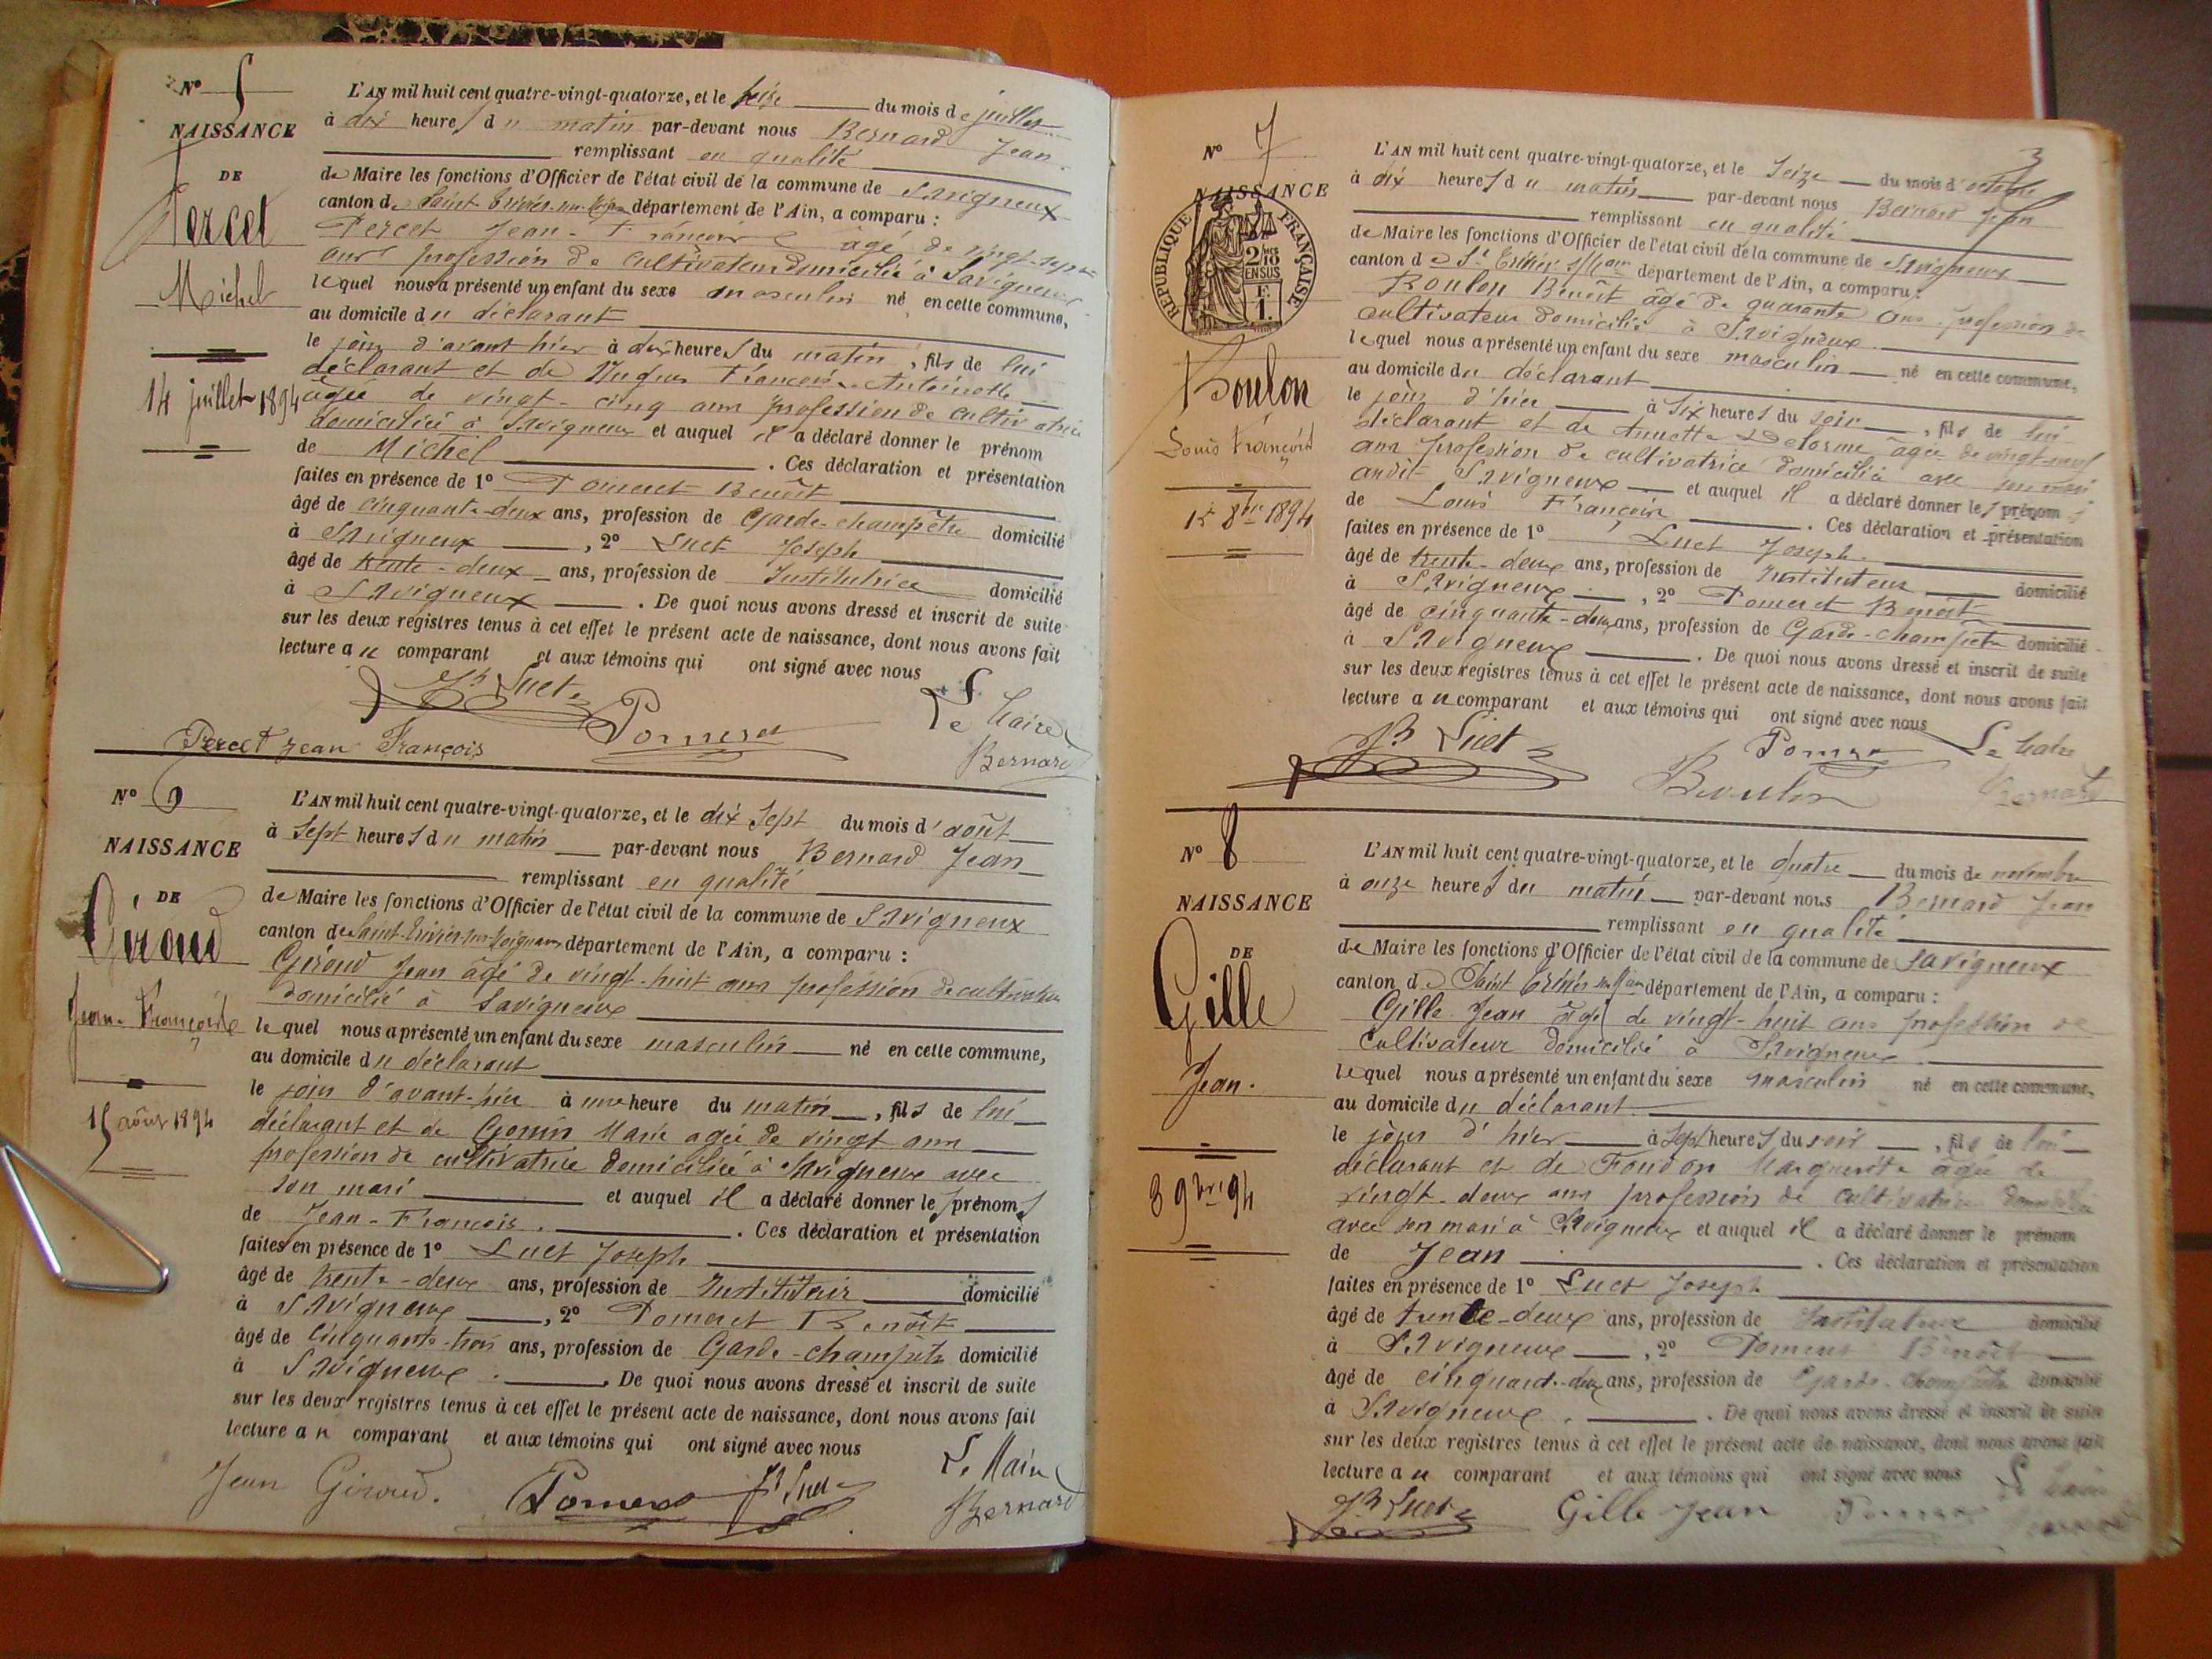 N° 5
NAISSANCE
DE
Percet
Michel
14 juillet 1894
L'AN mil huit cent quatre-vingt-quatorze, et le seize du mois de juillet
à dix heures du matin par-devant nous Bernard Jean
remplissant en qualité
de Maire les fonctions d'Officier de l'état civil de la commune de Savigneux
canton de Saint-Trivier-sur-Moignans département de l'Ain, a comparu :
Percet Jean-François âgé de vingt-sept
ans profession de cultivateur domicilié à Savigneux
lequel nous a présenté un enfant du sexe masculin né en cette commune,
au domicile du déclarant
le jour d'avant hier à dix heures du matin, fils de lui
déclarant et de Françoise Antoinette
âgée de vingt-cinq ans profession de cultivatrice
domiciliée à Savigneux et auquel il a déclaré donner le prénom
de Michel. Ces déclaration et présentation
faites en présence de 1° Pomeret Benoît
âgé de cinquante-deux ans, profession de Garde-champêtre domicilié
à Savigneux, 2° Luet Joseph
âgé de trente-deux ans, profession de domicilié
à Savigneux. De quoi nous avons dressé et inscrit de suite
sur les deux registres tenus à cet effet le présent acte de naissance, dont nous avons fait
lecture au comparant et aux témoins qui ont signé avec nous
Jh Luet Pomeret Le Maire
Percet Jean François Bernard
N° 6
NAISSANCE
DE
Giroud
Jean-François
15 août 1894
L'AN mil huit cent quatre-vingt-quatorze, et le dix sept du mois d'août
à sept heures du matin par-devant nous Bernard Jean
remplissant en qualité
de Maire les fonctions d'Officier de l'état civil de la commune de Savigneux
canton de Saint-Trivier-sur-Moignans département de l'Ain, a comparu :
Giroud Jean âgé de vingt-huit ans profession de cultivateur
domicilié à Savigneux
lequel nous a présenté un enfant du sexe masculin né en cette commune,
au domicile du déclarant
le jour d'avant-hier à une heure du matin, fils de lui
déclarant et de Gonin Marie agée de vingt ans
profession de cultivatrice domiciliée à Savigneux avec
son mari et auquel il a déclaré donner les prénoms
de Jean-François. Ces déclaration et présentation
faites en présence de 1° Luet Joseph
âgé de trente-deux ans, profession de domicilié
à Savigneux, 2° Pomeret Benoît
âgé de cinquante-trois ans, profession de Garde-champêtre domicilié
à Savigneux. De quoi nous avons dressé et inscrit de suite
sur les deux registres tenus à cet effet le présent acte de naissance, dont nous avons fait
lecture au comparant et aux témoins qui ont signé avec nous
Jean Giroud. Pomeret Jh Luet Le Maire
Bernard
3
N° 7
NAISSANCE
REPUBLIQUE FRANÇAISE
2/10
EN SUS
F.
1.
Boulon
Louis François
15 8bre 1894
L'AN mil huit cent quatre-vingt-quatorze, et le Seize du mois d'octobre
à dix heures du matin par-devant nous Bernard Jean
remplissant en qualité
de Maire les fonctions d'Officier de l'état civil de la commune de Savigneux
canton de St Trivier s/Moans département de l'Ain, a comparu :
Boulon Benoît âgé de quarante ans profession de
cultivateur domicilié à Savigneux
lequel nous a présenté un enfant du sexe masculin né en cette commune,
au domicile du déclarant
le jour d'hier à six heures du soir, fils de lui
déclarant et de Annette Delorme âgée de vingt-neuf
ans profession de cultivatrice domiciliée avec son mari
audit Savigneux et auquel il a déclaré donner les prénoms
de Louis François. Ces déclaration et présentation
faites en présence de 1° Luet Joseph
âgé de trente-deux ans, profession de Instituteur domicilié
à Savigneux, 2° Pomeret Benoît
âgé de cinquante-deux ans, profession de Garde-champêtre domicilié
à Savigneux. De quoi nous avons dressé et inscrit de suite
sur les deux registres tenus à cet effet le présent acte de naissance, dont nous avons fait
lecture au comparant et aux témoins qui ont signé avec nous
Jh Luet Pomeret Le Maire
Boulon Bernard
N° 8
NAISSANCE
DE
Gille
Jean.
3 9bre 94
L'AN mil huit cent quatre-vingt-quatorze, et le quatre du mois de novembre
à onze heures du matin par-devant nous Bernard Jean
remplissant en qualité
de Maire les fonctions d'Officier de l'état civil de la commune de Savigneux
canton de Saint Trivier sur Moans département de l'Ain, a comparu :
Gille Jean âgé de vingt-huit ans profession de
cultivateur domicilié à Savigneux
lequel nous a présenté un enfant du sexe masculin né en cette commune,
au domicile du déclarant
le jour d'hier à sept heures du soir, fils de lui
déclarant et de Foudon Marguerite âgée de
vingt-deux ans profession de cultivatrice domiciliée
avec son mari à Savigneux et auquel il a déclaré donner le prénom
de Jean. Ces déclaration et présentation
faites en présence de 1° Luet Joseph
âgé de trente-deux ans, profession de Instituteur domicilié
à Savigneux, 2° Pomeret Benoît
âgé de cinquante-deux ans, profession de Garde-champêtre domicilié
à Savigneux. De quoi nous avons dressé et inscrit de suite
sur les deux registres tenus à cet effet le présent acte de naissance, dont nous avons fait
lecture au comparant et aux témoins qui ont signé avec nous
Jh Luet Gille Jean Pomeret Le Maire
Bernard